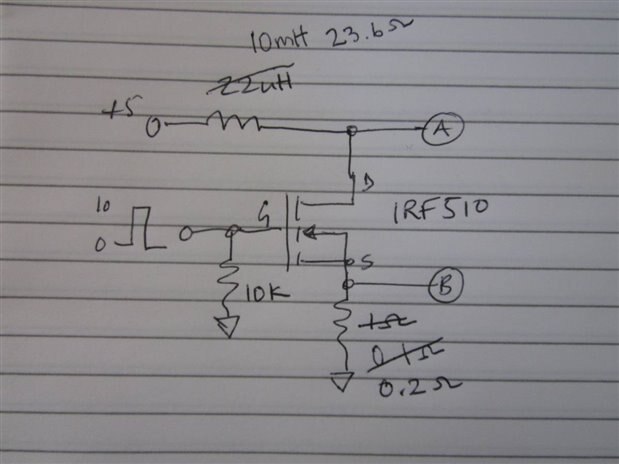 10mH 23.6Ω
22uH
+5
A
D
10
0
G
IRF510
S
10K
B
1Ω
0.1Ω
0.2Ω